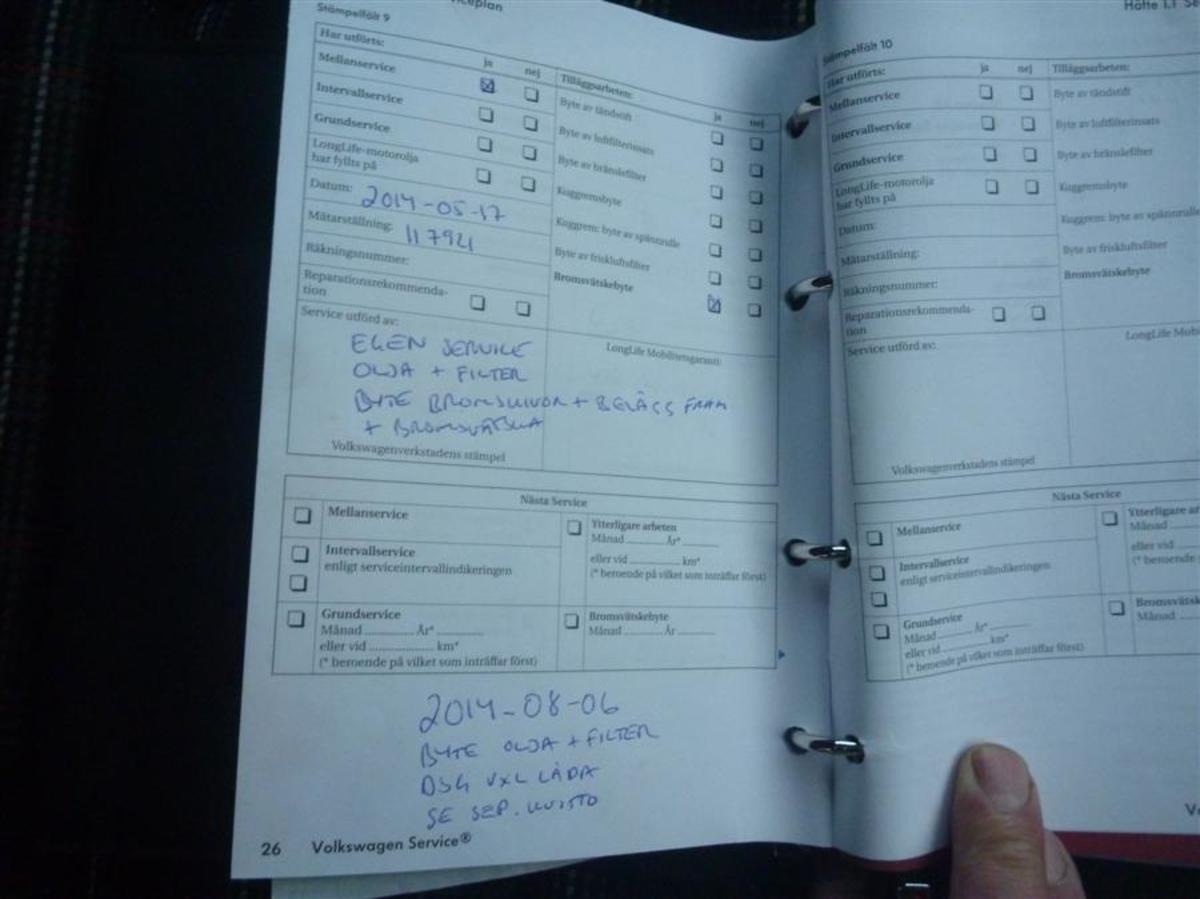 viceplan
Stämpelfält 9
Har utförts:
ja
nej
Tilläggsarbeten:
ja
nej
Mellanservice
Intervallservice
Grundservice
LongLife-motorolja
har fyllts på
Datum: 2014-05-17
Mätarställning: 117921
Räkningsnummer:
Reparationsrekommenda-
tion
Byte av tändstift
Byte av luftfilterinsats
Byte av bränslefilter
Kuggremsbyte
Kuggrem: byte av spännrulle
Byte av friskluftsfilter
Bromsvätskebyte
Service utförd av:
EGEN SERVICE
OLJA + FILTER
BYTE BROMSKIVOR + BELÄGG FRAM
+ BROMSVÄTSKA
Volkswagenverkstadens stämpel
LongLife Mobilitetsgaranti:
Nästa Service
Mellanservice
Intervallservice
enligt serviceintervallindikeringen
Grundservice
Månad ............ År* ............
eller vid ................ km*
(* beroende på vilket som inträffar först)
Ytterligare arbeten
Månad ............ År* ............
eller vid ................ km*
(* beroende på vilket som inträffar först)
Bromsvätskebyte
Månad ............ År ............
2014-08-06
BYTE OLJA + FILTER
DSG VXL LÅDA
SE SEP. KVITTO
26 Volkswagen Service®
Häfte 1.1 Se
Stämpelfält 10
Har utförts:
ja
nej
Tilläggsarbeten:
Mellanservice
Intervallservice
Grundservice
LongLife-motorolja
har fyllts på
Datum:
Mätarställning:
Räkningsnummer:
Reparationsrekommenda-
tion
Byte av tändstift
Byte av luftfilterinsats
Byte av bränslefilter
Kuggremsbyte
Kuggrem: byte av spännrulle
Byte av friskluftsfilter
Bromsvätskebyte
Service utförd av:
LongLife Mobi
Volkswagenverkstadens stämpel
Nästa Service
Mellanservice
Intervallservice
enligt serviceintervallindikeringen
Grundservice
Månad ............ År* ............
eller vid ................ km*
(* beroende på vilket som inträffar först)
Ytterligare ar
Månad
eller vid
(* beroende
Bromsvätsk
Månad